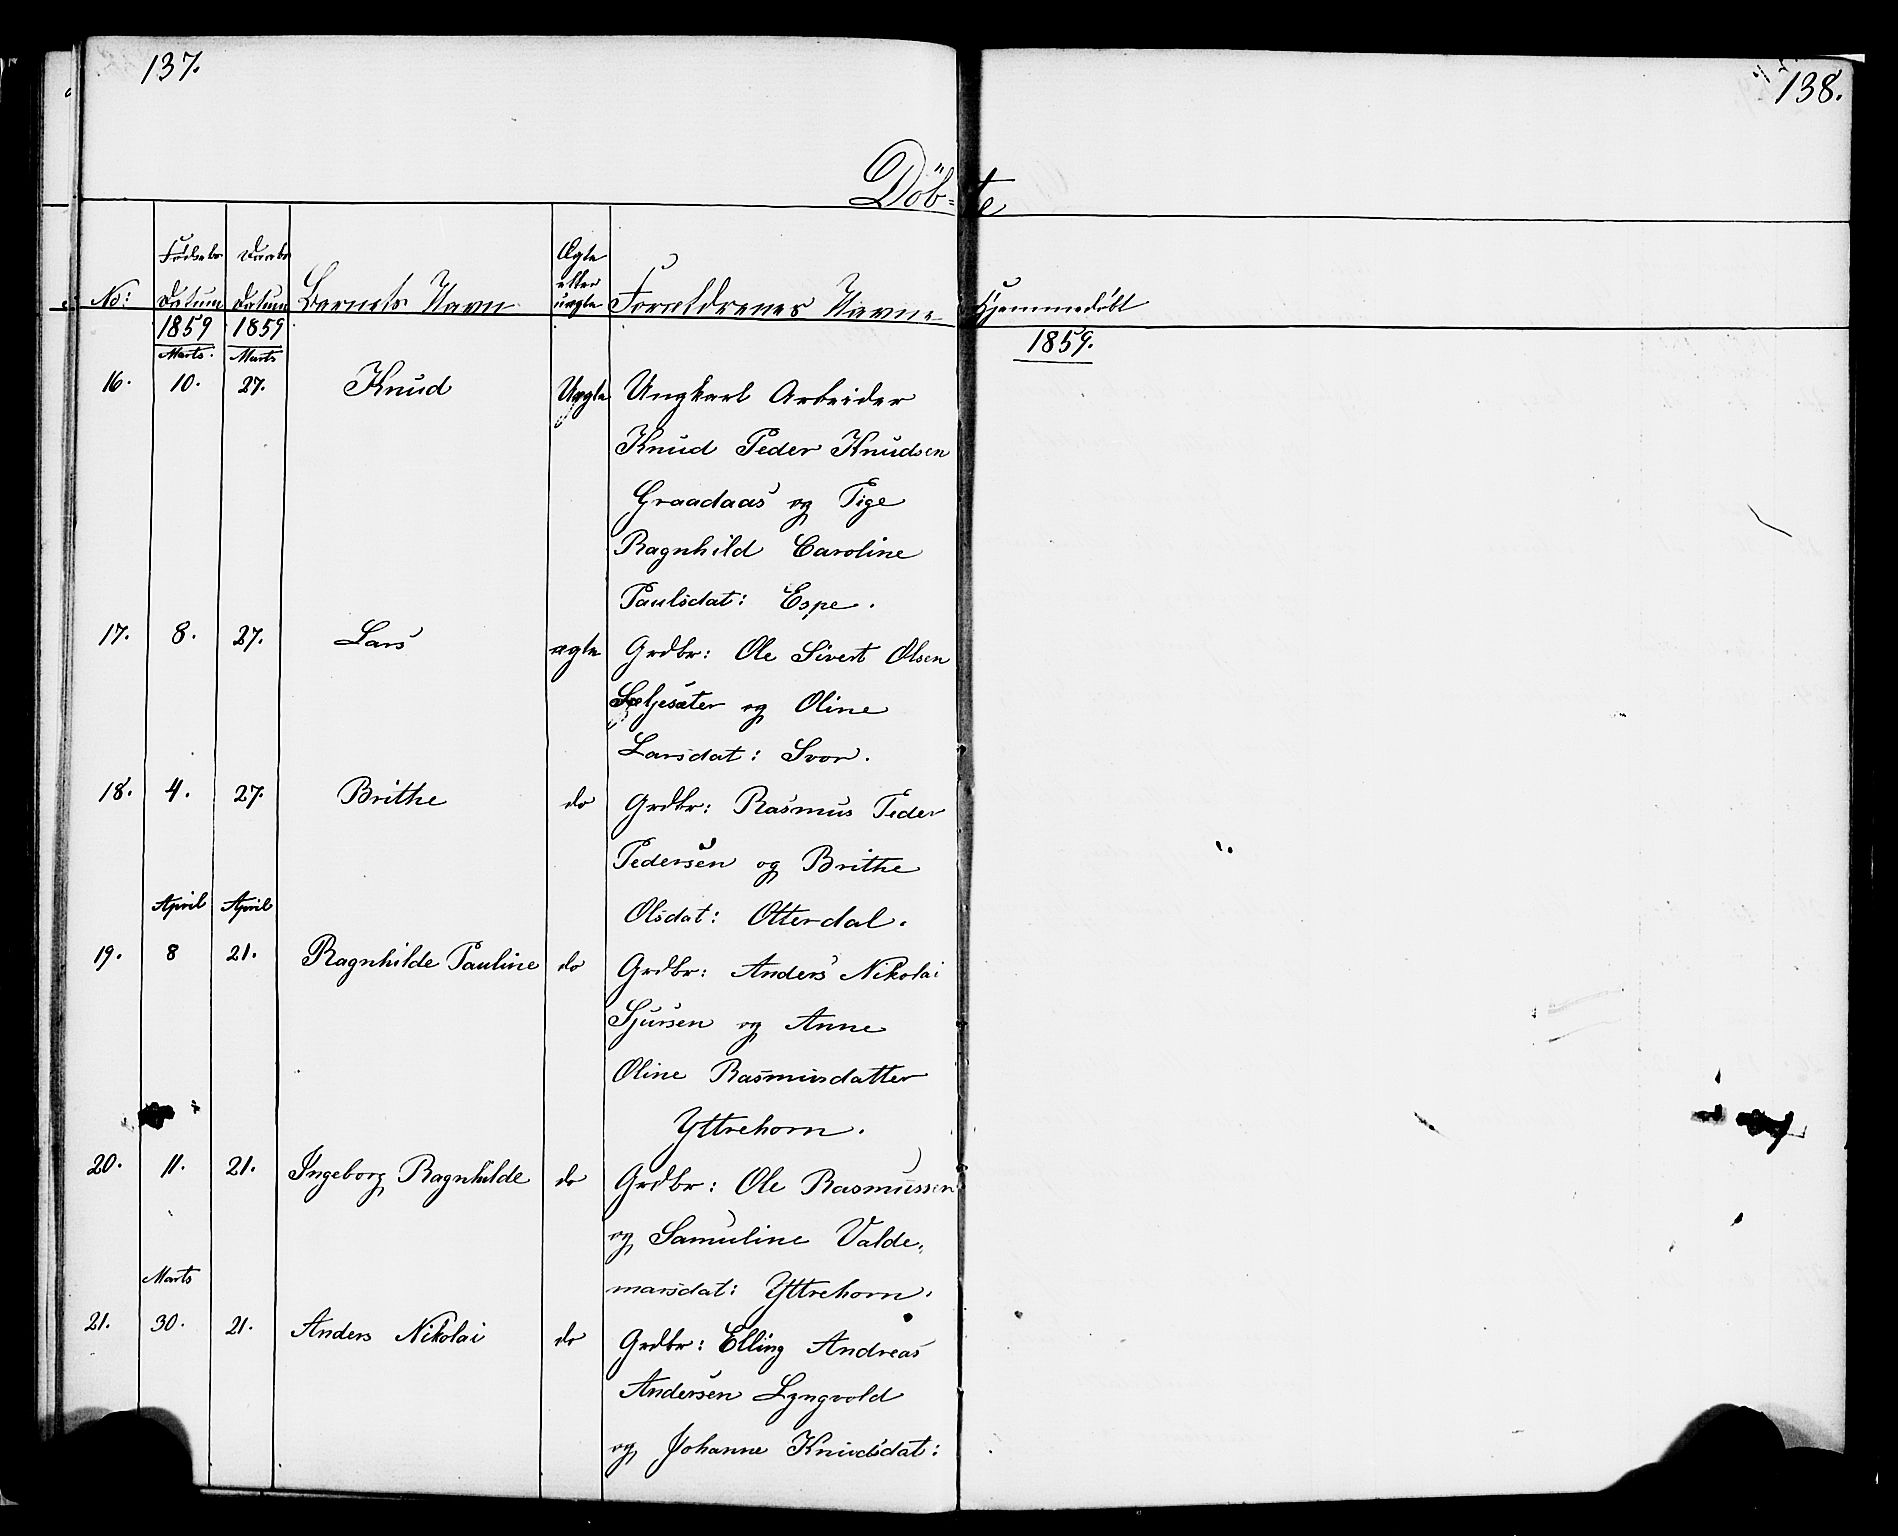 137.
138.
Döb=te
No: Fødsels Datum Daabs Datum Barnets Navn Ægte eller uægte Forældrenes Navne Hjemmedöbt
1859 1859 1859.
Marts. Marts
16. 10. 27. Knud Uægte Ungkarl Arbeider
Knud Peder Knudsen
Graadaas og Pige
Ragnhild Caroline
Paulsdat: Espe.
17. 8. 27. Lars ægte Grdbr: Ole Sivert Olsen
Seljesæter og Oline
Larsdat: Svor.
18. 4. 27. Brithe do Grdbr: Rasmus Peder
Pedersen og Brithe
April April Olsdat: Otterdal.
19. 8 21. Ragnhilde Pauline do Grdbr: Anders Nikolai
Sjursen og Anne
Oline Rasmusdatter
Yttrehorn.
20. 11. 21. Ingeborg Ragnhilde do Grdbr: Ole Rasmussen
og Samuline Valde=
Marts marsdat: Yttrehorn.
21. 30. 21. Anders Nikolai do Grdbr: Elling Andreas
Andersen Lyngvold
og Johanne Knudsdat: